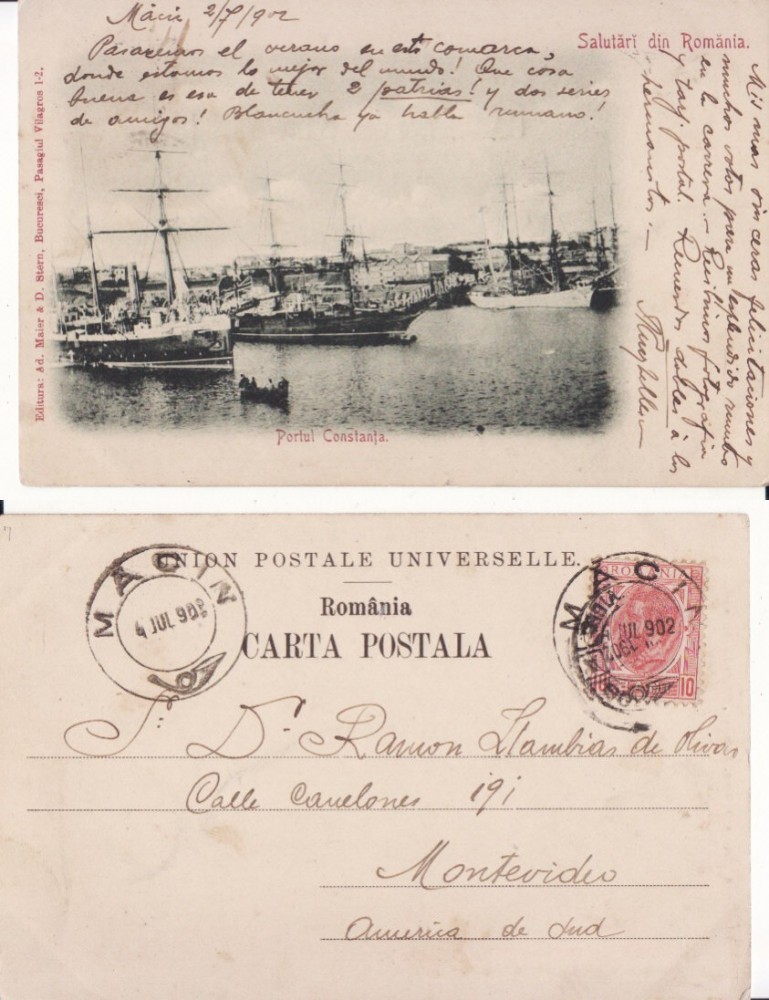 Măcin 2/7/902
Pasaremos el verano en esta comarca,
donde estamos lo mejor del mundo! Que cosa
buena es esa de tener 2 patrias! y dos series
de amigos! Blanquita ya habla rumano!
Salutări din România.
Mis mas sinceras felicitaciones y
muchos votos para un esplendido rumbo
en la carrera.- Recibimos fotografia
y tarj. postal. Recuerdos dobles à los
hermanitos.-
Editura: Ad. Maier & D. Stern, Bucuresci, Pasagiul Vilagros 1-2.
Portul Constanța.
UNION POSTALE UNIVERSELLE.
România
CARTA POSTALA
MACIN
4 JUL 902
ROMANIA
MACIN
4 JUL 902
10
Sr. Dr. Ramon Llambias de Olivar
Calle Canelones 191
Montevideo
America de Sud